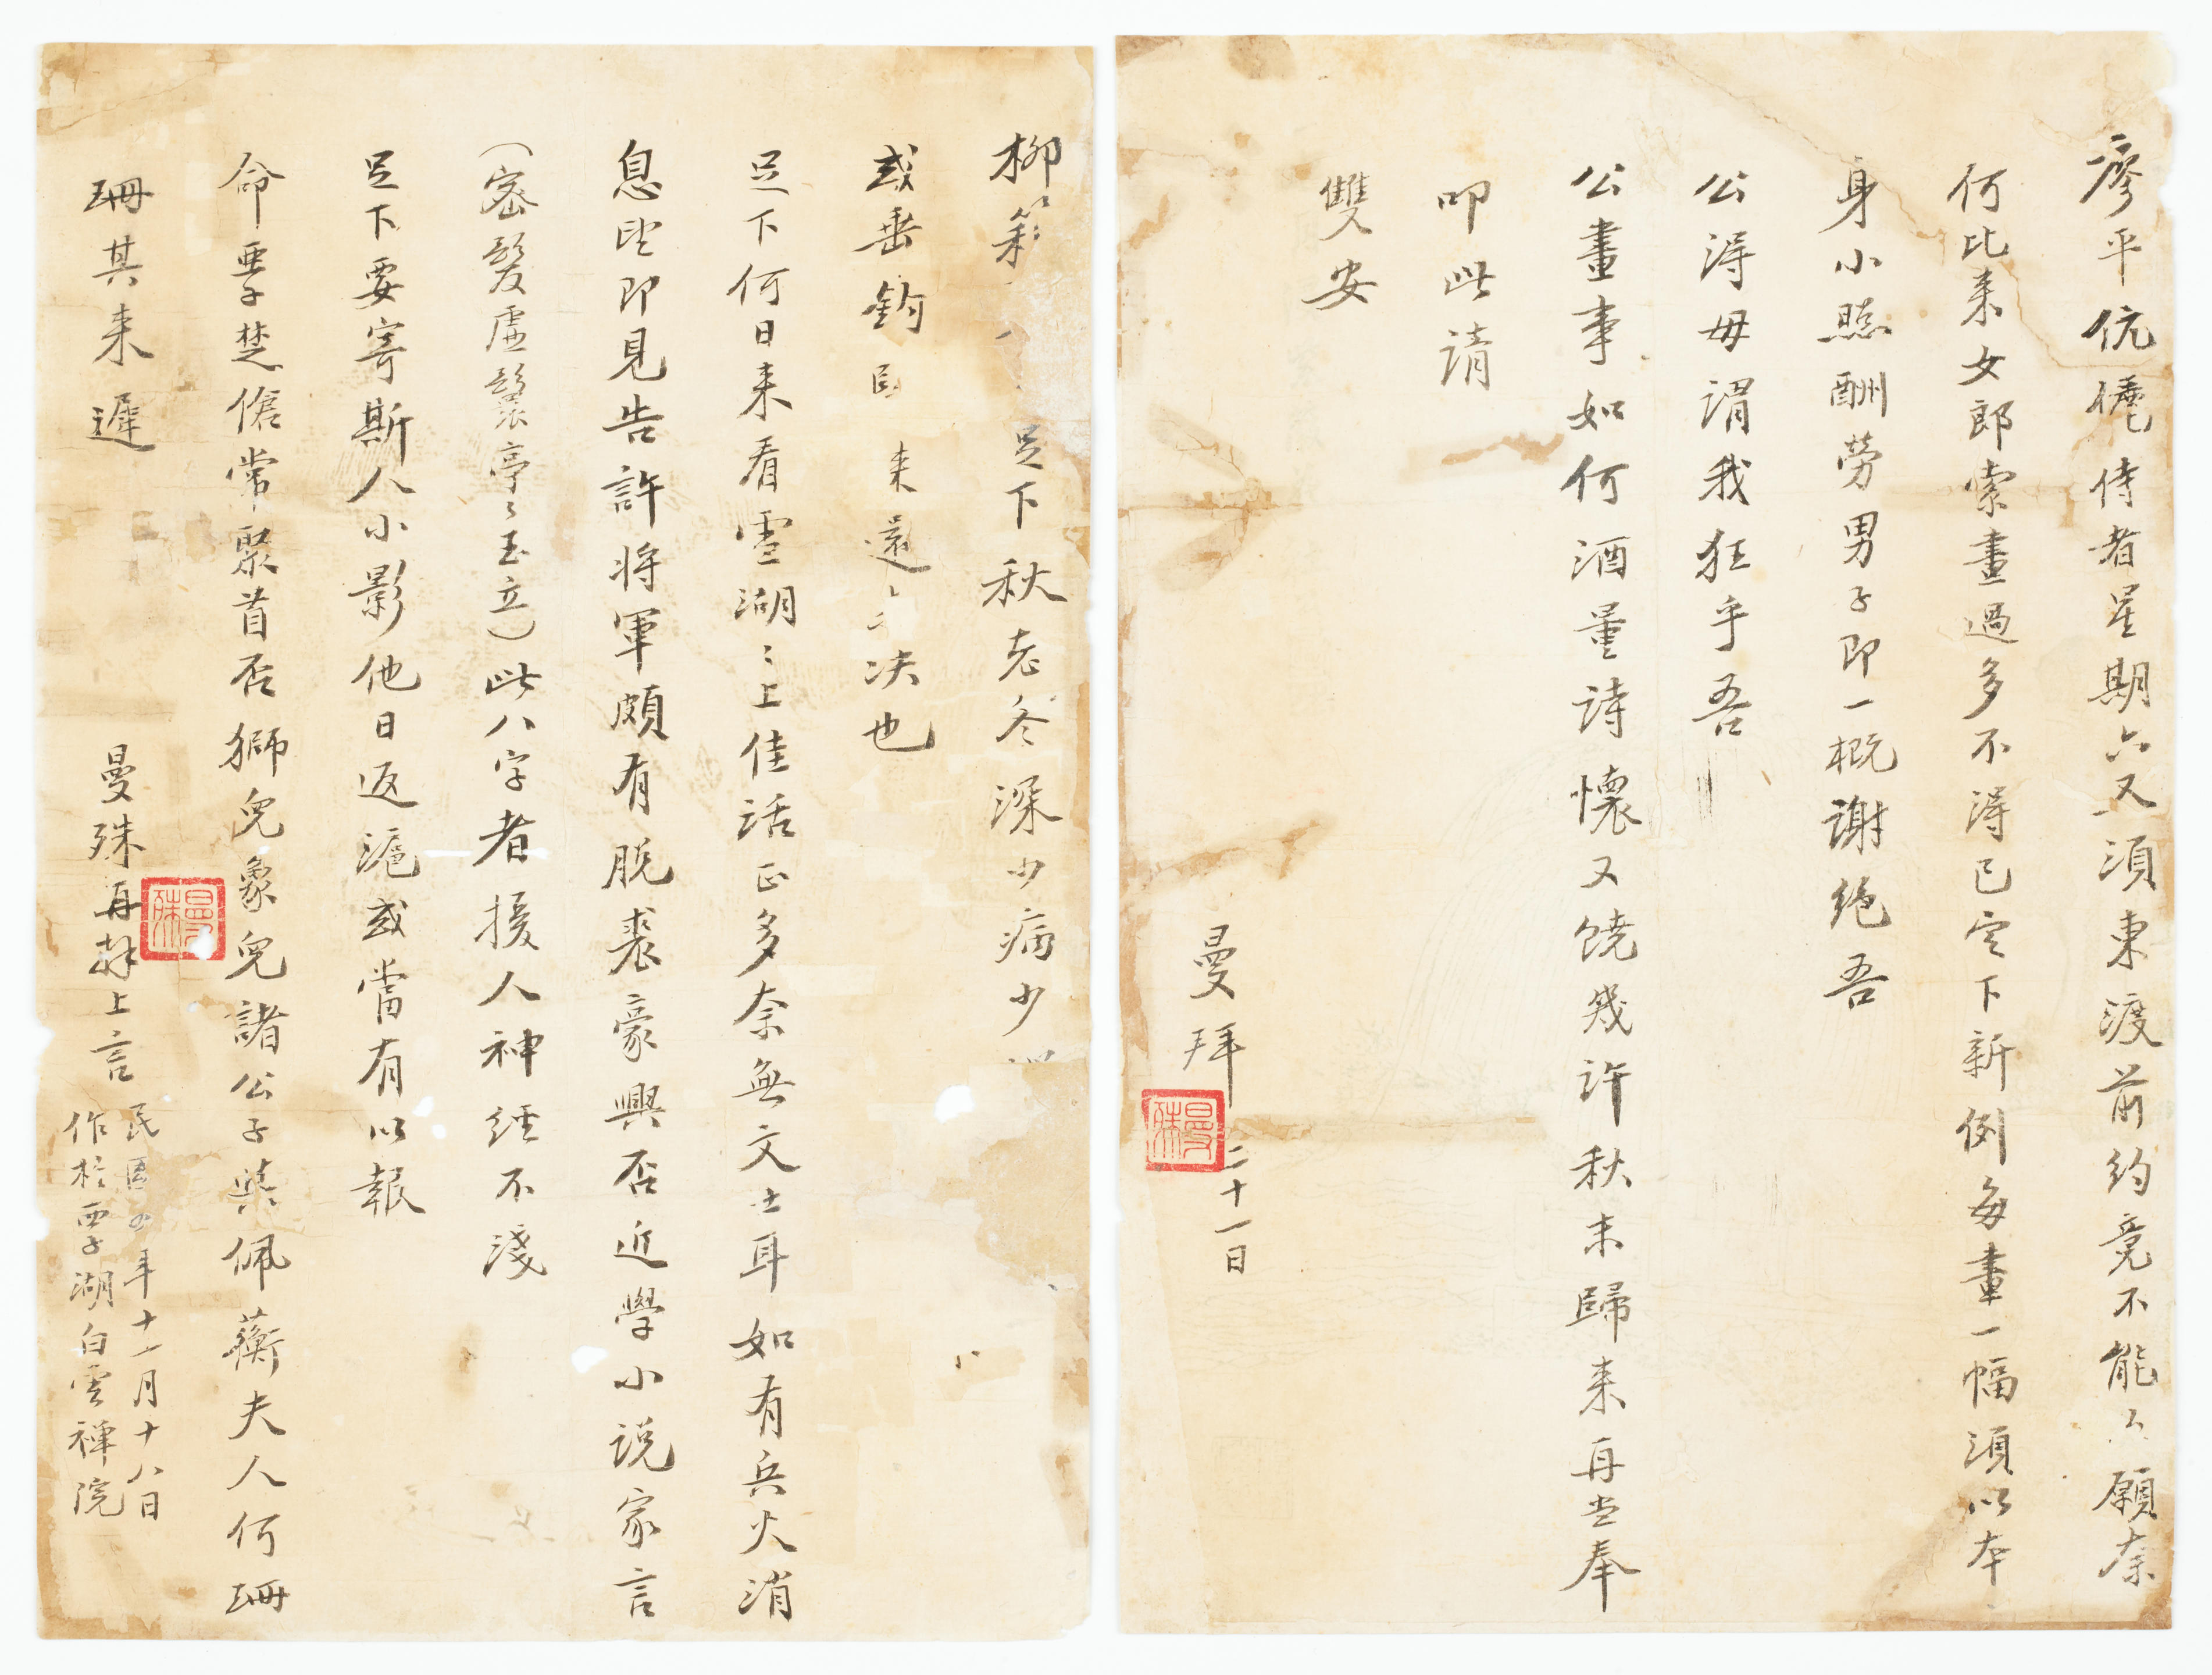 瘳平伉儷侍者星期六又須東渡前約竟不能如願奈
何比來女郎索畫過多不得已定下新例每畫一幅須以本
身小照酬勞男子即一概謝絕吾
公得毋謂我狂乎吾
公畫事如何酒量詩懷又饒幾許秋末歸來再當奉
叩此請
雙安
曼拜
二十一日
曼殊
柳 足下秋老冬深少病少
或垂釣 來還 決也
足下何日來看雪湖〻上佳話正多奈無文士耳如有兵火消
息望即見告許將軍頗有脫裘豪興否近學小説家言
(密髮虛鬟亭〻玉立)此八字者援人神經不淺
足下要寄斯人小影他日返滬或當有以報
命要子楚傖常聚首否獅兒象兒諸公子與佩蘅夫人何珊
珊其來遲
曼殊再拜上言
民國四年十一月十八日
作於西子湖白雲禪院
曼殊